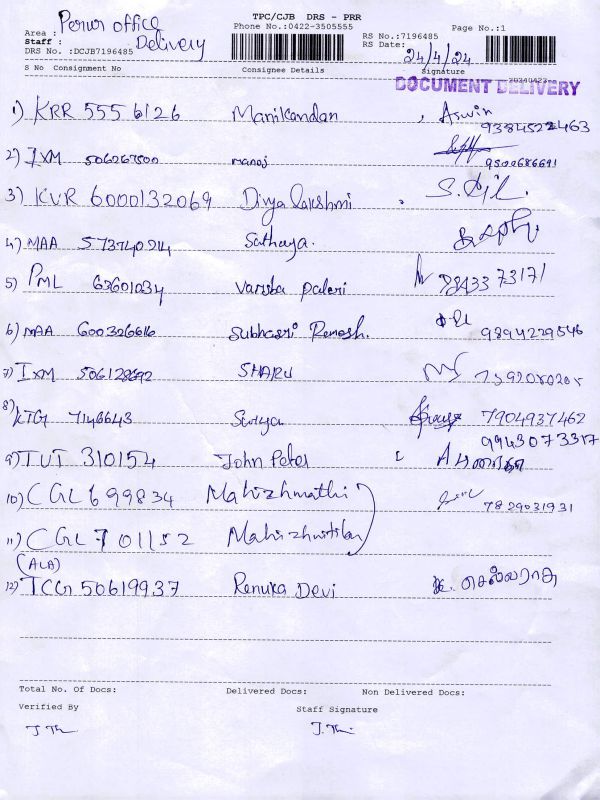 TPC/CJB DRS - PRR
Perur office
Area :
Phone No.:0422-3505555
Page No.:1
RS No.:7196485
Staff : Delivery
RS Date: 24/4/24
DRS No. :DCJB7196485
S No Consignment No Consignee Details Signature
DOCUMENT DELIVERY
1) KRR 555 6126 Manikandan , Aswin
9384522463
2) IXM 506267500 manoj
9500686691
3) KVR 6000132069 Divya lakshmi
4) MAA 573740214 Sathaya.
5) PML 63601034 Varsha Paleri 9843373171
6) MAA 600326616 Subhasri Ramesh. 9894229546
7) IXM 506128692 SHARU
8) KTG 7146643 Surya 7904937462
9943073317
9) TUT 310154 John Peter
10) CGL 699834 Mahizhmathi
7829031931
11) CGL 701152
(ALA)
12) TCG 50619937 Renuka Devi க. செல்லராசு
Total No. Of Docs: Delivered Docs: Non Delivered Docs:
Verified By Staff Signature